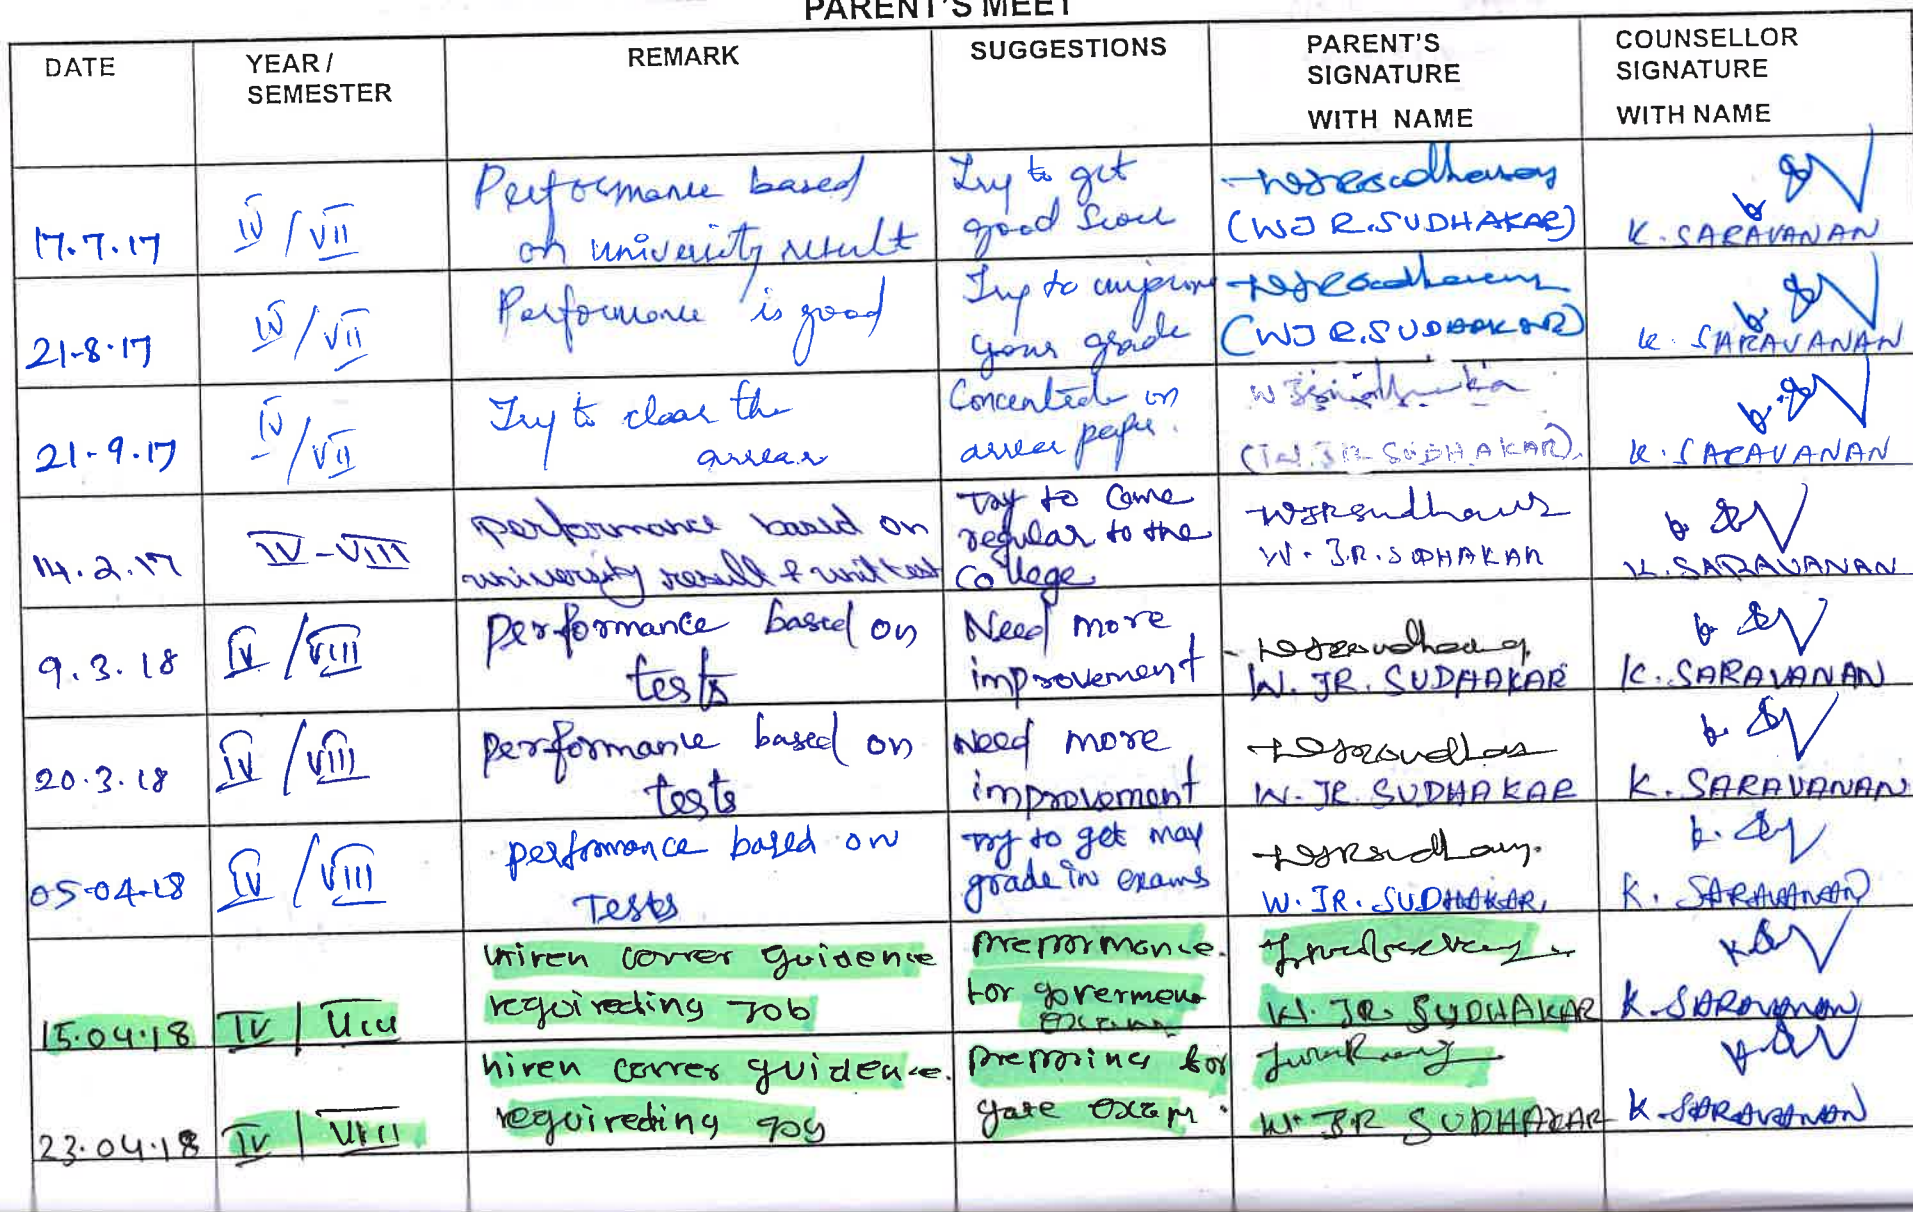 PARENT'S MEET
DATE
YEAR /
SEMESTER
REMARK
SUGGESTIONS
PARENT'S
SIGNATURE
WITH NAME
COUNSELLOR
SIGNATURE
WITH NAME
17.7.17
IV / VII
Performance based
on university result
Try to get
good Score
(WJ R.SUDHAKAR)
K. SARAVANAN
21-8-17
IV / VII
Performance is good
Try to improve
your grade
(WJ R.SUDHAKAR)
K. SARAVANAN
21-9-17
IV / VII
Try to clear the
arrear
Concentrate on
arrear paper.
(W.JR SUDHAKAR).
K. SARAVANAN
14.2.17
IV - VIII
performance based on
university result & unit test
Try to Come
regular to the
College
W. J.R. SUDHAKAR
K. SARAVANAN
9.3.18
IV / VIII
performance based on
tests
Need more
improvement
W. JR. SUDHAKAR
K. SARAVANAN
20.3.18
IV / VIII
performance based on
tests
Need more
improvement
W. JR. SUDHAKAR
K. SARAVANAN
05-04-18
IV / VIII
performance based on
Tests
Try to get may
grade in exams
W. JR. SUDHAKAR
K. SARAVANAN
15.04.18
IV | VIII
guidence
job
for
W. JR. SUDHAKAR
K. SARAVANAN
23.04.18
IV | VIII
guidence
for
gate exam.
W. JR SUDHAKAR
K. SARAVANAN